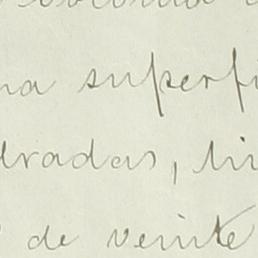 na superfi
dradas, li
de veinte